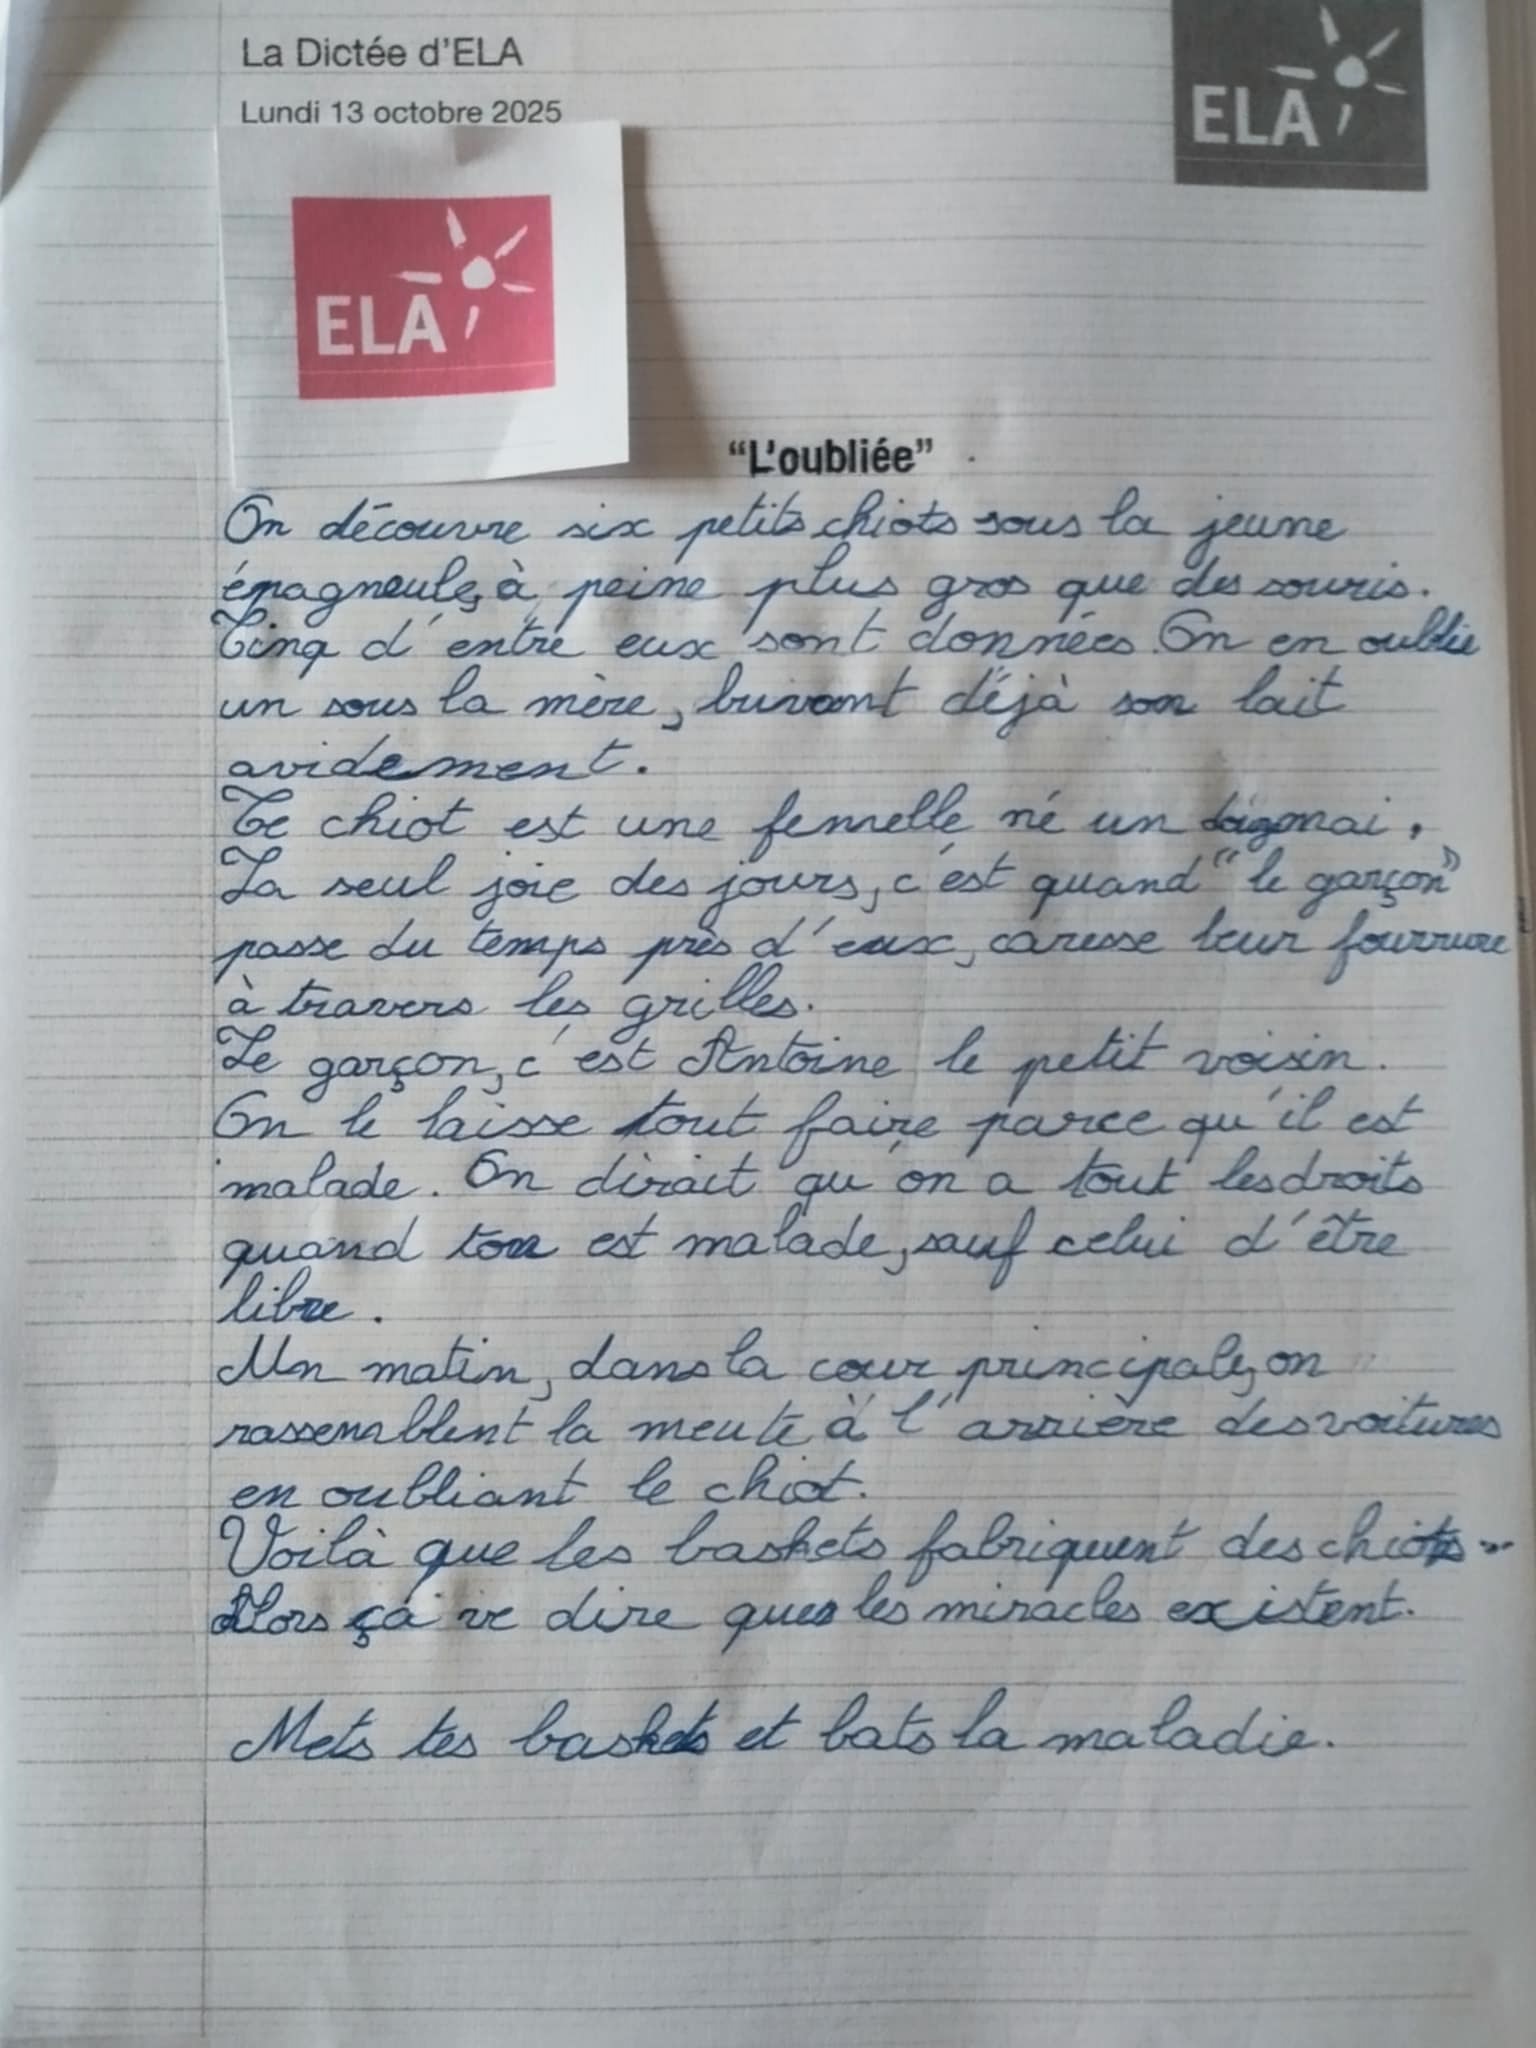 La Dictée d'ELA
Lundi 13 octobre 2025
ELA
ELA
"L'oubliée"
On découvre six petits chiots sous la jeune
épagneule, à peine plus gros que des souris.
Cinq d'entre eux sont données. On en oublie
un sous la mère, buvant déjà son lait
avidement.
Ce chiot est une femelle né un mai.
La seul joie des jours, c'est quand "le garçon"
passe du temps près d'eux, caresse leur fourrure
à travers les grilles.
Le garçon, c'est Antoine le petit voisin.
On le laisse tout faire parce qu'il est
malade. On dirait qu'on a tout les droits
quand est malade, sauf celui d'être
libre.
Un matin, dans la cour principale, on
rassemblent la meute à l'arrière des voitures
en oubliant le chiot.
Voilà que les baskets fabriquent des chiots...
Alors ça ve dire que les miracles existent.
Mets tes baskets et bats la maladie.